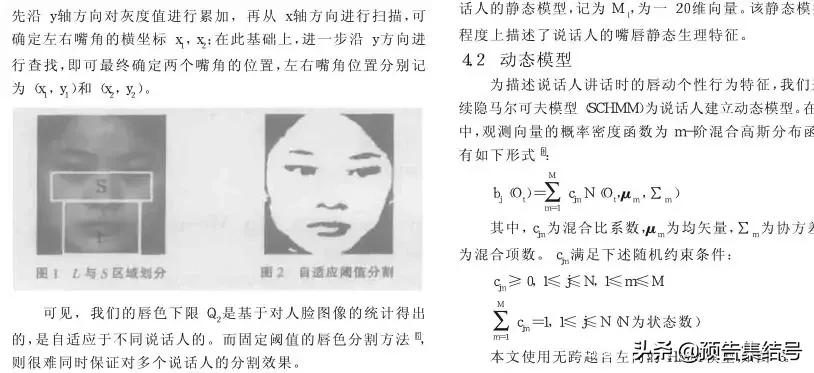 先沿 y轴方向对灰度值进行累加，再从 x轴方向进行扫描，可
确定左右嘴角的横坐标 x₁, x₂；在此基础上，进一步沿 y方向进
行查找，即可最终确定两个嘴角的位置，左右嘴角位置分别记
为 (x₁, y₁)和 (x₂, y₂)。
S
L
图1 L与S区域划分
图2 自适应阈值分割
可见，我们的唇色下限 Q₂是基于对人脸图像的统计得出
的，是自适应于不同说话人的。而固定阈值的唇色分割方法
则很难同时保证对多个说话人的分割效果。
话人的静态模型，记为 M₁，为一 20维向量。该静态模
程度上描述了说话人的嘴唇静态生理特征。
4.2 动态模型
为描述说话人讲话时的唇动个性行为特征，我们
续隐马尔可夫模型 (SCHMM)为说话人建立动态模型。在
中，观测向量的概率密度函数为 m—阶混合高斯分布函
有如下形式：
bⱼ(Oₜ)=∑ᴹₘ₌₁ cⱼₘN(Oₜ,μₘ,Σₘ)
其中，cⱼₘ为混合比系数，μₘ为均矢量，Σₘ为协方差
为混合项数。cⱼₘ满足下述随机约束条件：
cⱼₘ≥0, 1≤j≤N, 1≤m≤M
∑ᴹₘ₌₁ cⱼₘ=1, 1≤j≤N (N为状态数)
本文使用无跨越自左向
头条@预告集结号